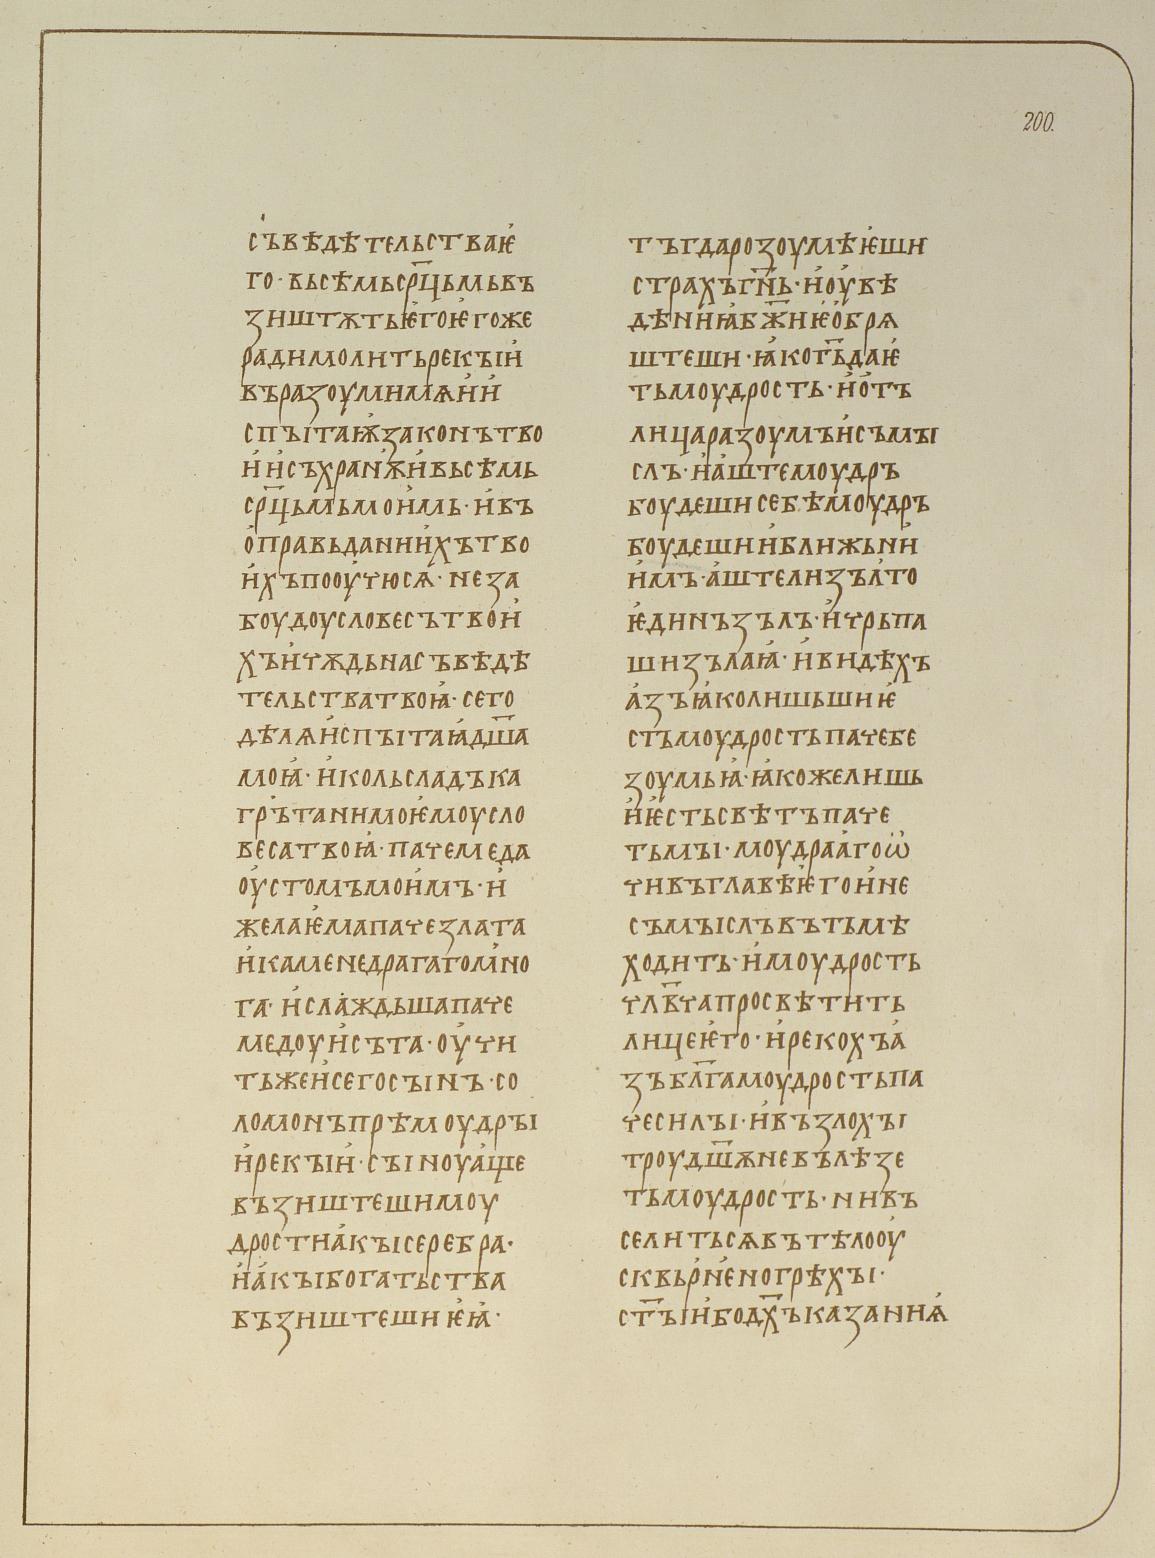 200.
съвѣдѣтельстваѥ
го· вьсѣмьср҃цьмьвъ
зиштѫтьѥгоѥгоже
радимолитьрекъіи
въразоумимѧии
спъітаѭзаконътво
иисъхранѫивьсѣмь
ср҃цьмьмоимь· ивъ
оправьданиихътво
ихъпооучюсѧ· неза
боудоусловесътвои
хъичѫдьнасъвѣдѣ
тельстватвоꙗ· сего
дѣлѧиспъітаꙗдш҃а
моꙗ· икольсладъка
грътанимоѥмоусло
весатвоꙗ· пачемеда
оустомъмоимъ· и
желаѥмапачезлата
икаменедрагагомно
га· ислаждьшапаче
медоуисъта· оучи
тьжеисегосъінъ· со
ломонъпрѣмоудръі
ирекъіи· съіноуаще
възиштешимоу
дростиакъісеребра·
иакъібогатьства
възиштешиѥꙗ·
тъгдаразоумѣѥши
страхъгн҃ь· иоувѣ
дѣниꙗбж҃ниѥобрѧ
штеши· ꙗкогь҃даѥ
тьмоудрость· иотъ
лицаразоумъисъмъі
слъ· иаштемоудръ
боудешисебѣмоудръ
боудешииближьнии
имъ· аштелизълто
ѥдинъзълъ· ичрьпа
шизълаꙗ· ивидѣхъ
азъꙗколишьшиѥ
стьмоудростьпачебе
зоумьꙗ· ꙗкожелишь
иѥстьсвѣтъпаче
тьмъі· моудраагоѡ
чивъглавѣѥгоине
съмъіслъвътьмѣ
ходить· имоудрость
члв҃чапросвѣтить
лицеѥго· ирекохъа
зъбл҃гамоудростьпа
чесилъі· ивъзлохъі
троудш҃ѫневълѣзе
тьмоудрость· нивъ
селитьсѧвътѣлооу
сквьрненогрѣхъі·
ст҃ъіибодх҃ъказаниꙗ